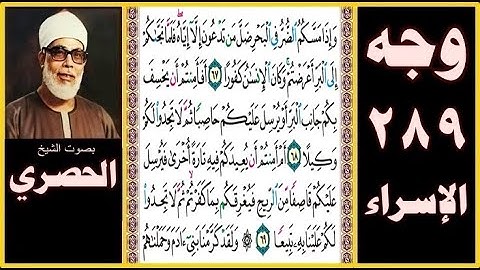 وجه
٢٨٩
الإسراء
وَإِذَا مَسَّكُمُ الضُّرُّ فِي الْبَحْرِ ضَلَّ مَن تَدْعُونَ إِلَّا إِيَّاهُ فَلَمَّا نَجَّىٰكُمْ
إِلَى الْبَرِّ أَعْرَضْتُمْ وَكَانَ الْإِنسَٰنُ كَفُورًا ٦٧ أَفَأَمِنتُمْ أَن يَخْسِفَ
بِكُمْ جَانِبَ الْبَرِّ أَوْ يُرْسِلَ عَلَيْكُمْ حَاصِبًا ثُمَّ لَا تَجِدُوا لَكُمْ
وَكِيلًا ٦٨ أَمْ أَمِنتُمْ أَن يُعِيدَكُمْ فِيهِ تَارَةً أُخْرَىٰ فَيُرْسِلَ
عَلَيْكُمْ قَاصِفًا مِّنَ الرِّيحِ فَيُغْرِقَكُم بِمَا كَفَرْتُمْ ثُمَّ لَا تَجِدُوا
لَكُمْ عَلَيْنَا بِهِ تَبِيعًا ٦٩ وَلَقَدْ كَرَّمْنَا بَنِي ءَادَمَ وَحَمَلْنَٰهُمْ
بصوت الشيخ
الحصري